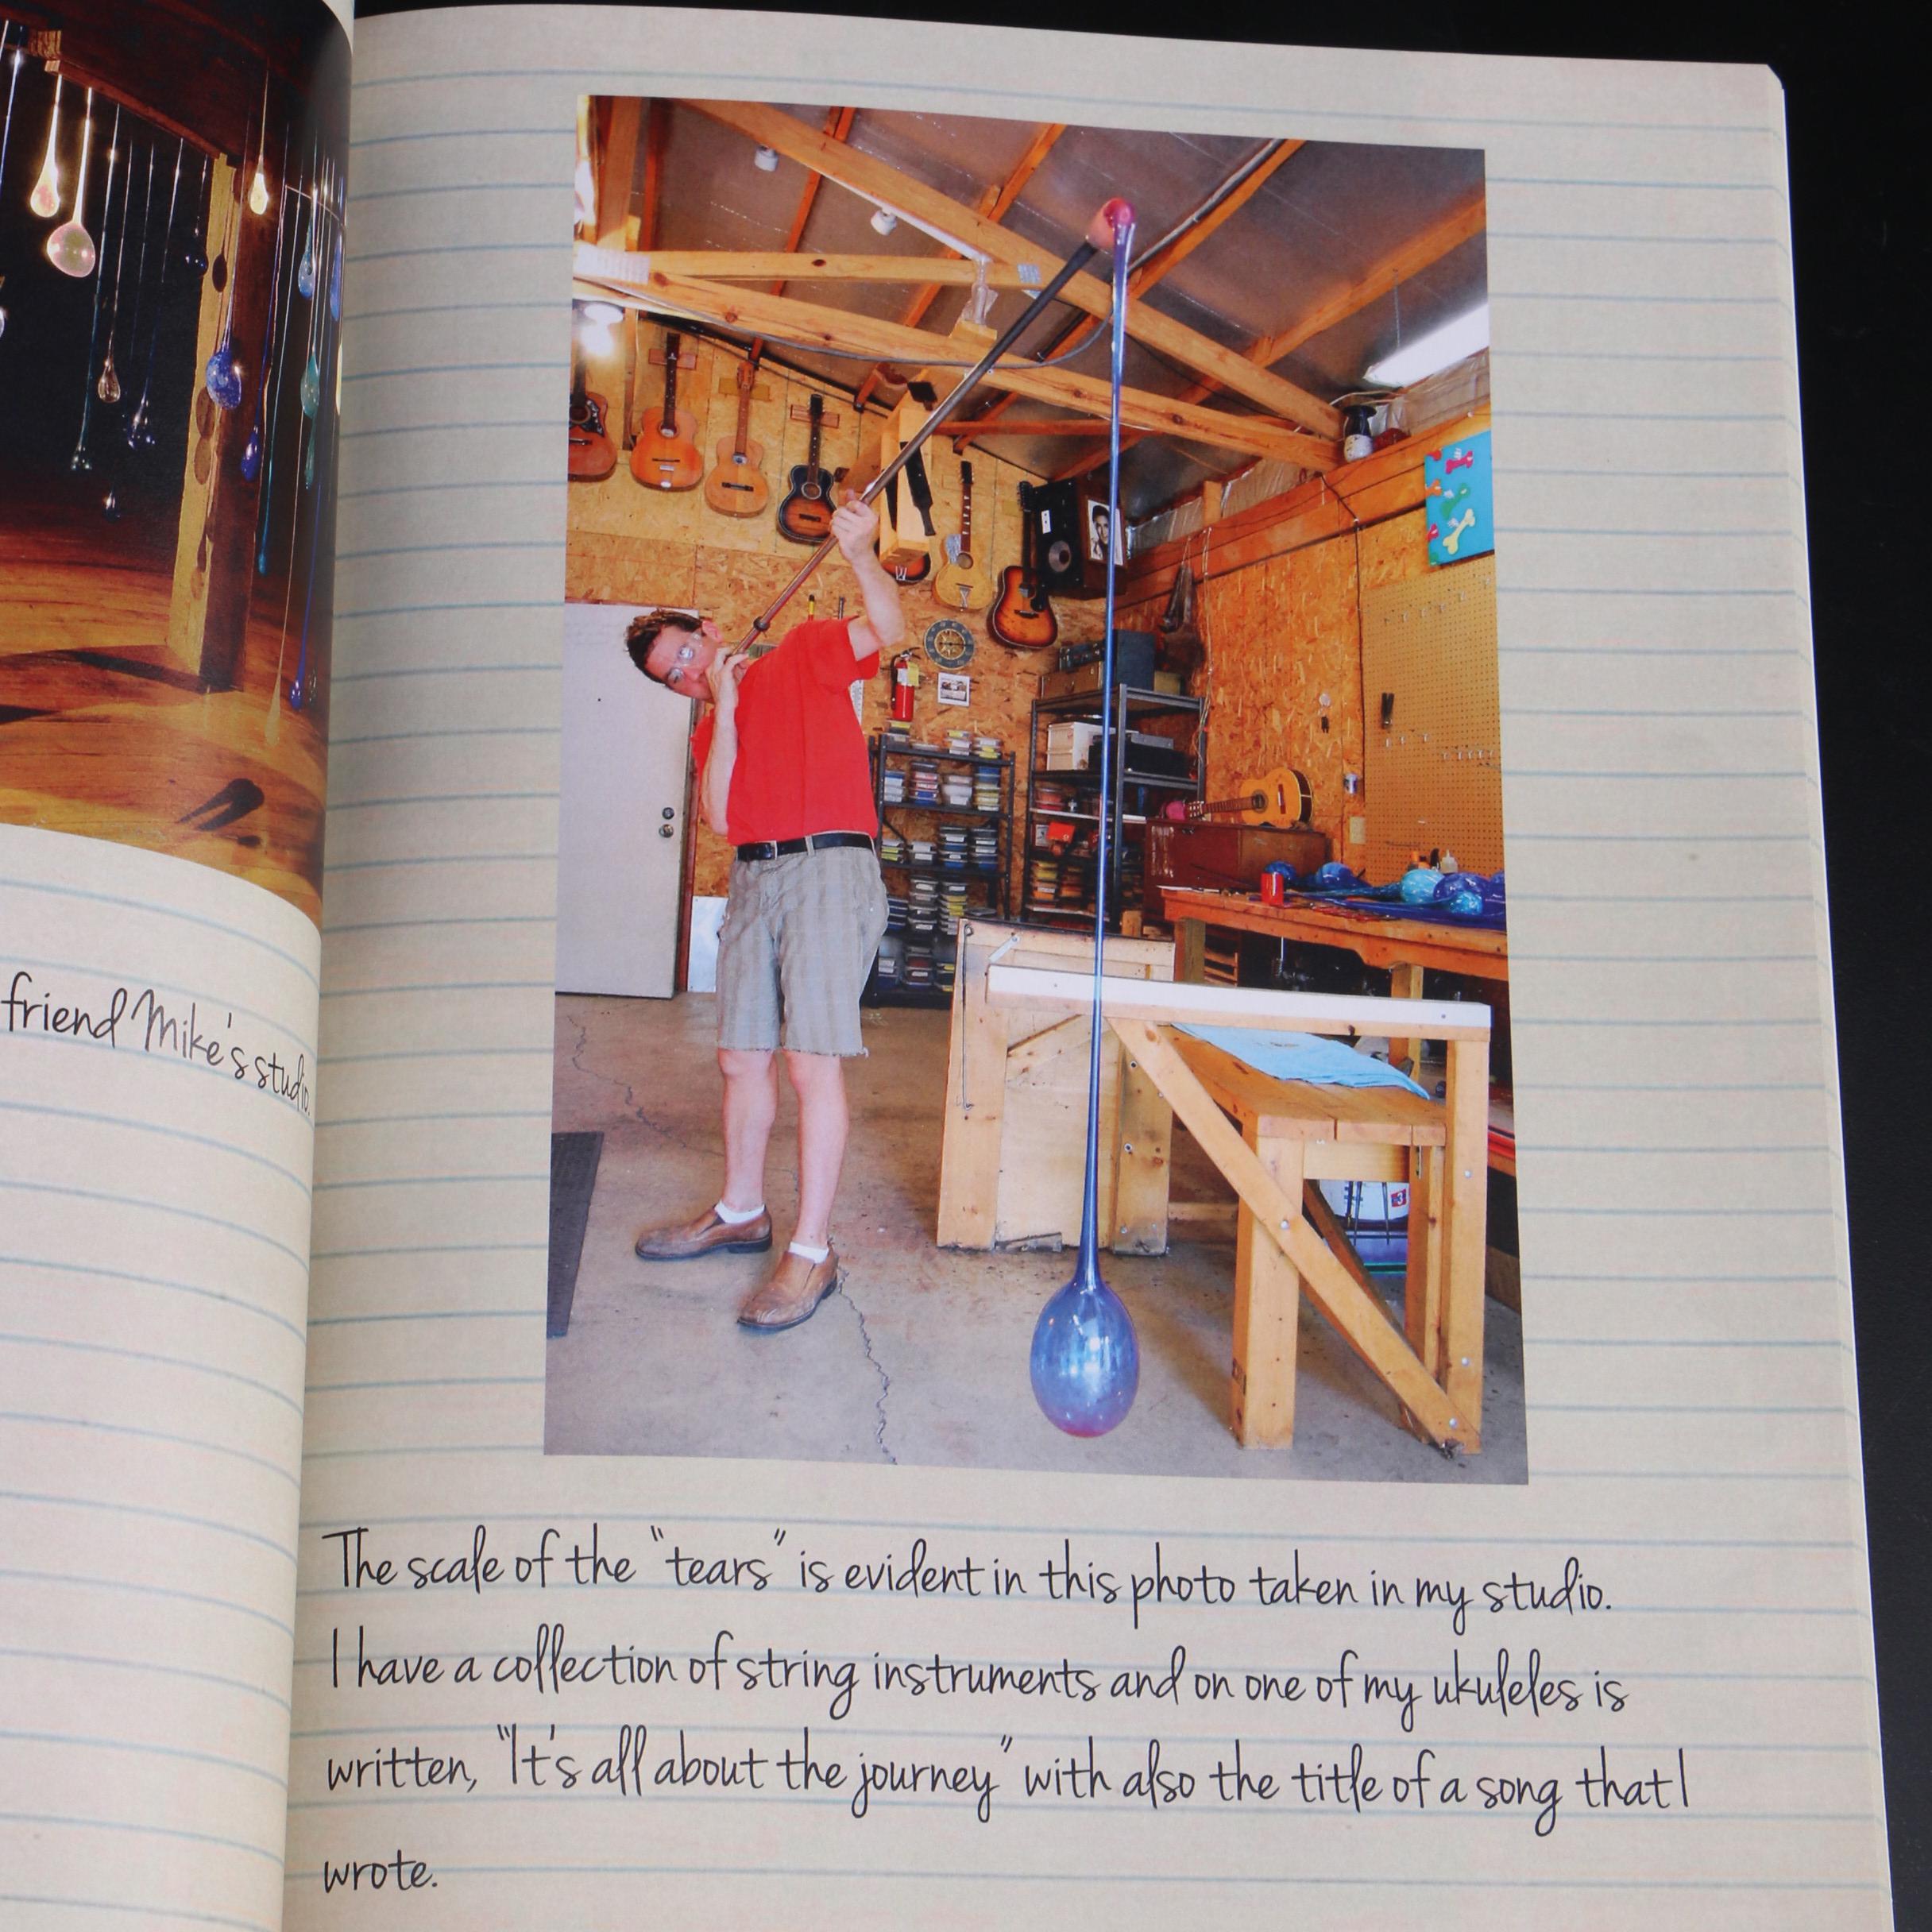 friend Mike's studio.
The scale of the "tears" is evident in this photo taken in my studio.
I have a collection of string instruments and on one of my ukuleles is
written, "It's all about the journey" with also the title of a song that I
wrote.